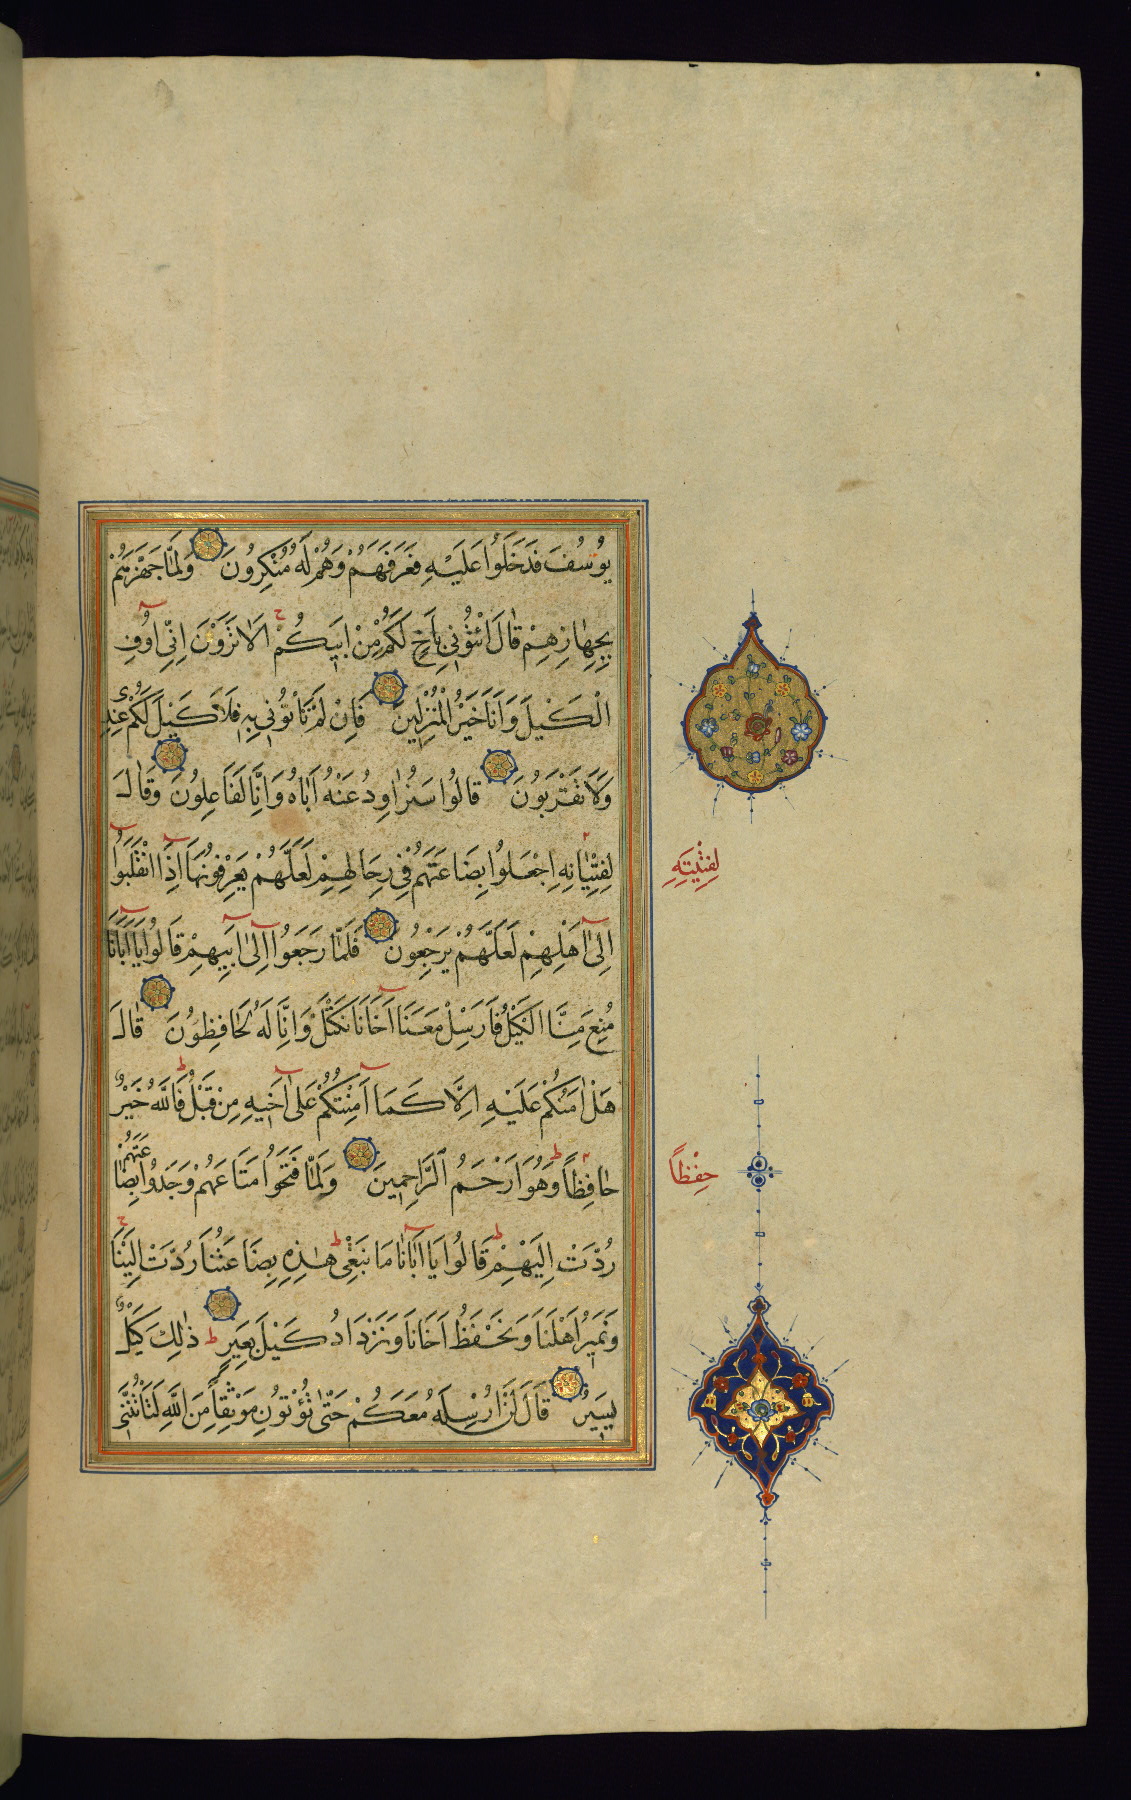 يُوسُفَ فَدَخَلُوا عَلَيْهِ فَعَرَفَهُمْ وَهُمْ لَهُ مُنْكِرُونَ وَلَمَّا جَهَّزَهُمْ
بِجَهَازِهِمْ قَالَ ائْتُونِي بِأَخٍ لَكُمْ مِنْ أَبِيكُمْ أَلَا تَرَوْنَ أَنِّي أُوفِي
الْكَيْلَ وَأَنَا خَيْرُ الْمُنْزِلِينَ فَإِنْ لَمْ تَأْتُونِي بِهِ فَلَا كَيْلَ لَكُمْ عِنْدِي
وَلَا تَقْرَبُونِ قَالُوا سَنُرَاوِدُ عَنْهُ أَبَاهُ وَإِنَّا لَفَاعِلُونَ وَقَالَ
لِفِتْيَانِهِ اجْعَلُوا بِضَاعَتَهُمْ فِي رِحَالِهِمْ لَعَلَّهُمْ يَعْرِفُونَهَا إِذَا انْقَلَبُوا
لِفِتْيَتِهِ
إِلَى أَهْلِهِمْ لَعَلَّهُمْ يَرْجِعُونَ فَلَمَّا رَجَعُوا إِلَى أَبِيهِمْ قَالُوا يَا أَبَانَا
مُنِعَ مِنَّا الْكَيْلُ فَأَرْسِلْ مَعَنَا أَخَانَا نَكْتَلْ وَإِنَّا لَهُ لَحَافِظُونَ قَالَ
هَلْ آمَنُكُمْ عَلَيْهِ إِلَّا كَمَا أَمِنْتُكُمْ عَلَى أَخِيهِ مِنْ قَبْلُ فَاللَّهُ خَيْرٌ
حَافِظًا وَهُوَ أَرْحَمُ الرَّاحِمِينَ وَلَمَّا فَتَحُوا مَتَاعَهُمْ وَجَدُوا بِضَاعَتَهُمْ
حِفْظًا
رُدَّتْ إِلَيْهِمْ قَالُوا يَا أَبَانَا مَا نَبْغِي هٰذِهِ بِضَاعَتُنَا رُدَّتْ إِلَيْنَا
وَنَمِيرُ أَهْلَنَا وَنَحْفَظُ أَخَانَا وَنَزْدَادُ كَيْلَ بَعِيرٍ ذٰلِكَ كَيْلٌ
يَسِيرٌ قَالَ لَنْ أُرْسِلَهُ مَعَكُمْ حَتَّى تُؤْتُونِ مَوْثِقًا مِنَ اللَّهِ لَتَأْتُنَّنِي